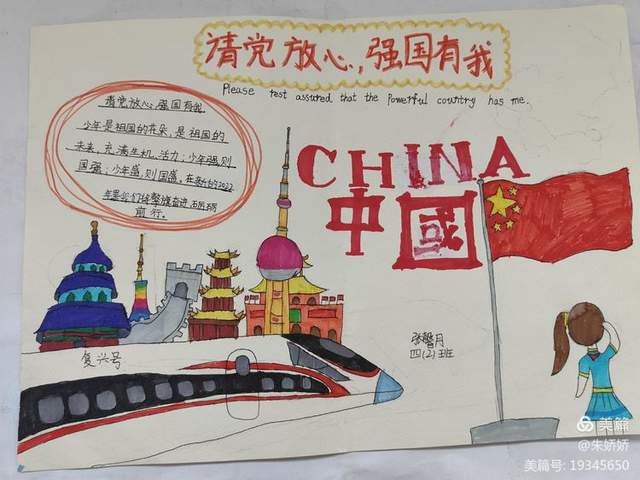 请党放心,强国有我
Please rest assured that the powerful country has me.
请党放心 强国有我
少年是祖国的花朵,是祖国的
未来,充满生机、活力;少年强则
国强;少年盛,则国盛,在新的2022
年里我们将整旗奋进 砥砺
前行。
CHINA
中國
张馨月
四(2)班
复兴号
美篇
@朱娇娇
美篇号: 19345650